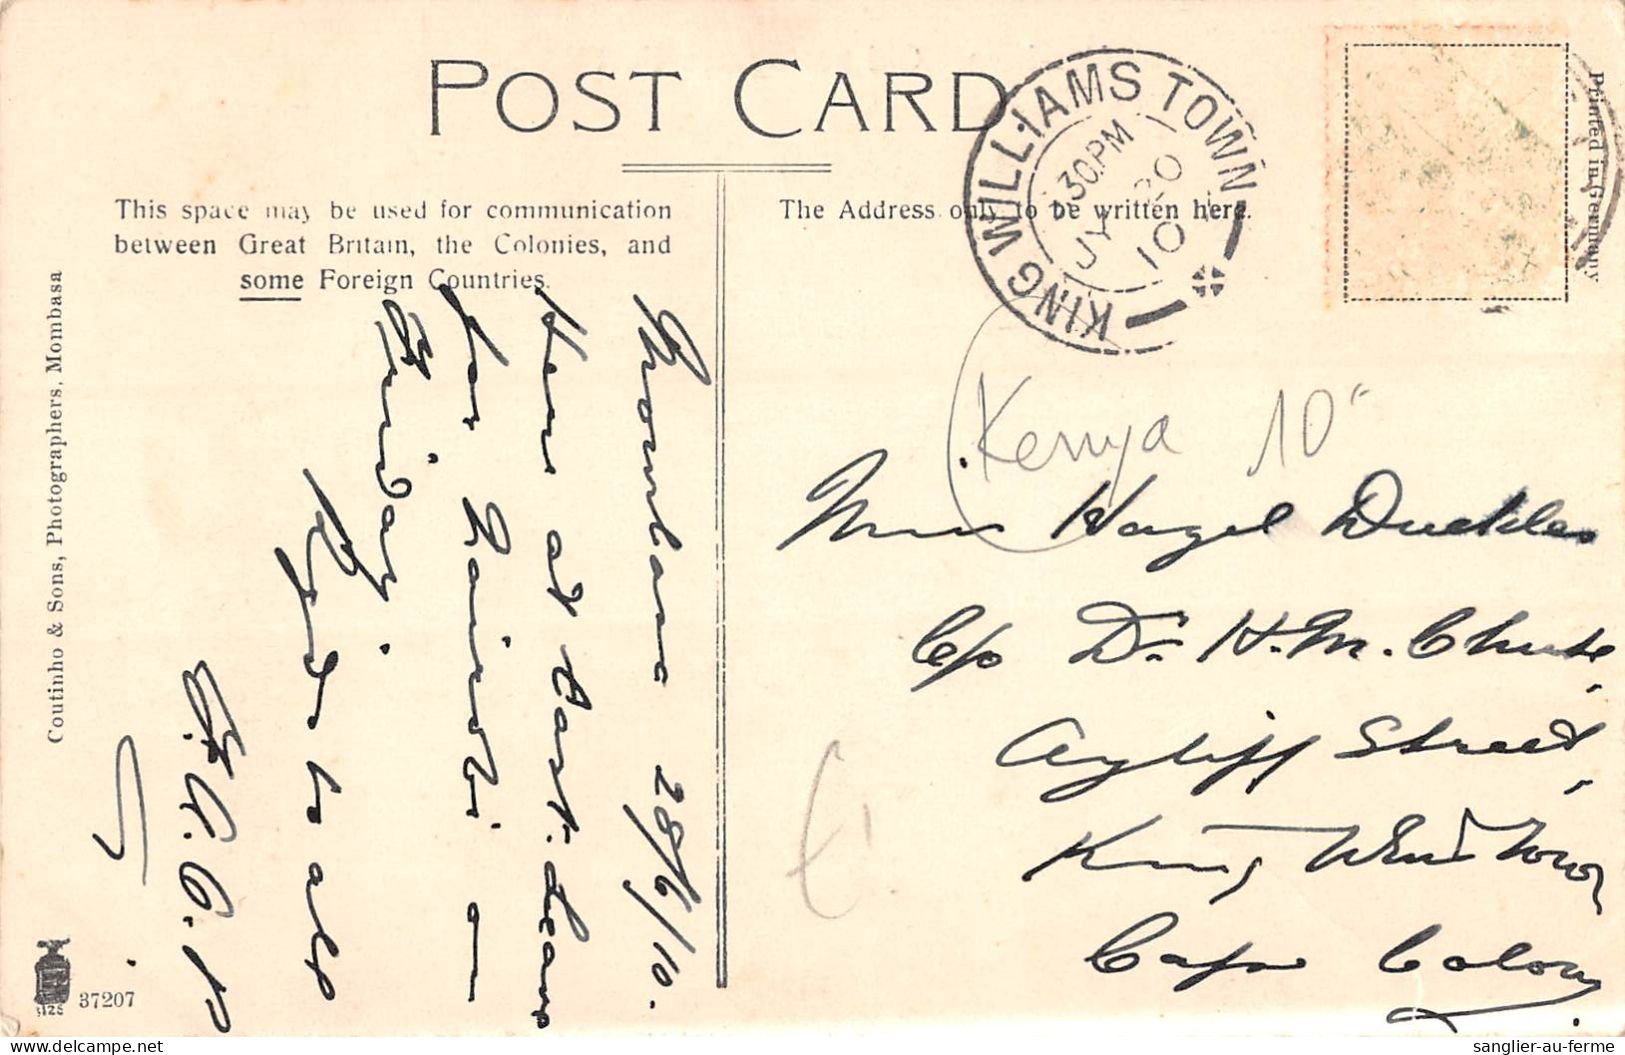 POST CARD
This space may be used for communication
between Great Britain, the Colonies, and
some Foreign Countries.
The Address only to be written here.
KING WILLIAMS TOWN
30PM
JY 20
10
Printed in Germany
Kenya 10
Miss Hazel Duckles
C/o Dr. H. M. Chute,
Ayliff Street,
King Wms Town
Cape Colony.
£1
Mombasa 28/6/10.
Here at last. Leave
for Nairobi on
Friday.
Rgds to all
Coutinho & Sons, Photographers, Mombasa
37207
delcampe.net
sanglier-au-ferme